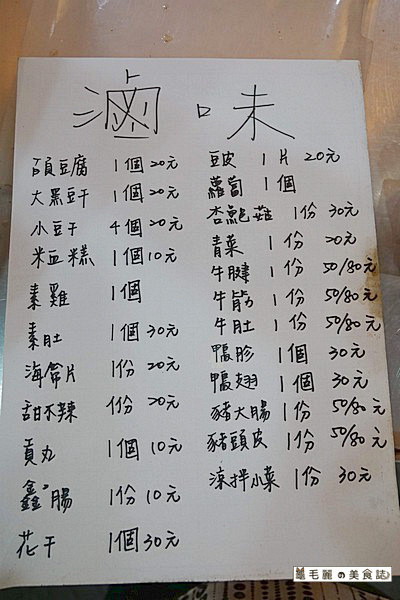 滷味
百頁豆腐 1個 20元
大黑豆干 1個 20元
小豆干 4個 20元
米血糕 1個 10元
素雞 1個
素肚 1個 30元
海帶片 1份 20元
甜不辣 1份 20元
貢丸 1個 10元
鑫鑫腸 1份 10元
花干 1個 30元
豆皮 1片 20元
蘿蔔 1個
杏鮑菇 1份 30元
青菜 1份 20元
牛腱 1份 50/80元
牛筋 1份 50/80元
牛肚 1份 50/80元
鴨胗 1個 30元
鴨翅 1個 30元
豬大腸 1份 50/80元
豬頭皮 1份 50/80元
涼拌小菜 1份 30元
毛麗の美食誌